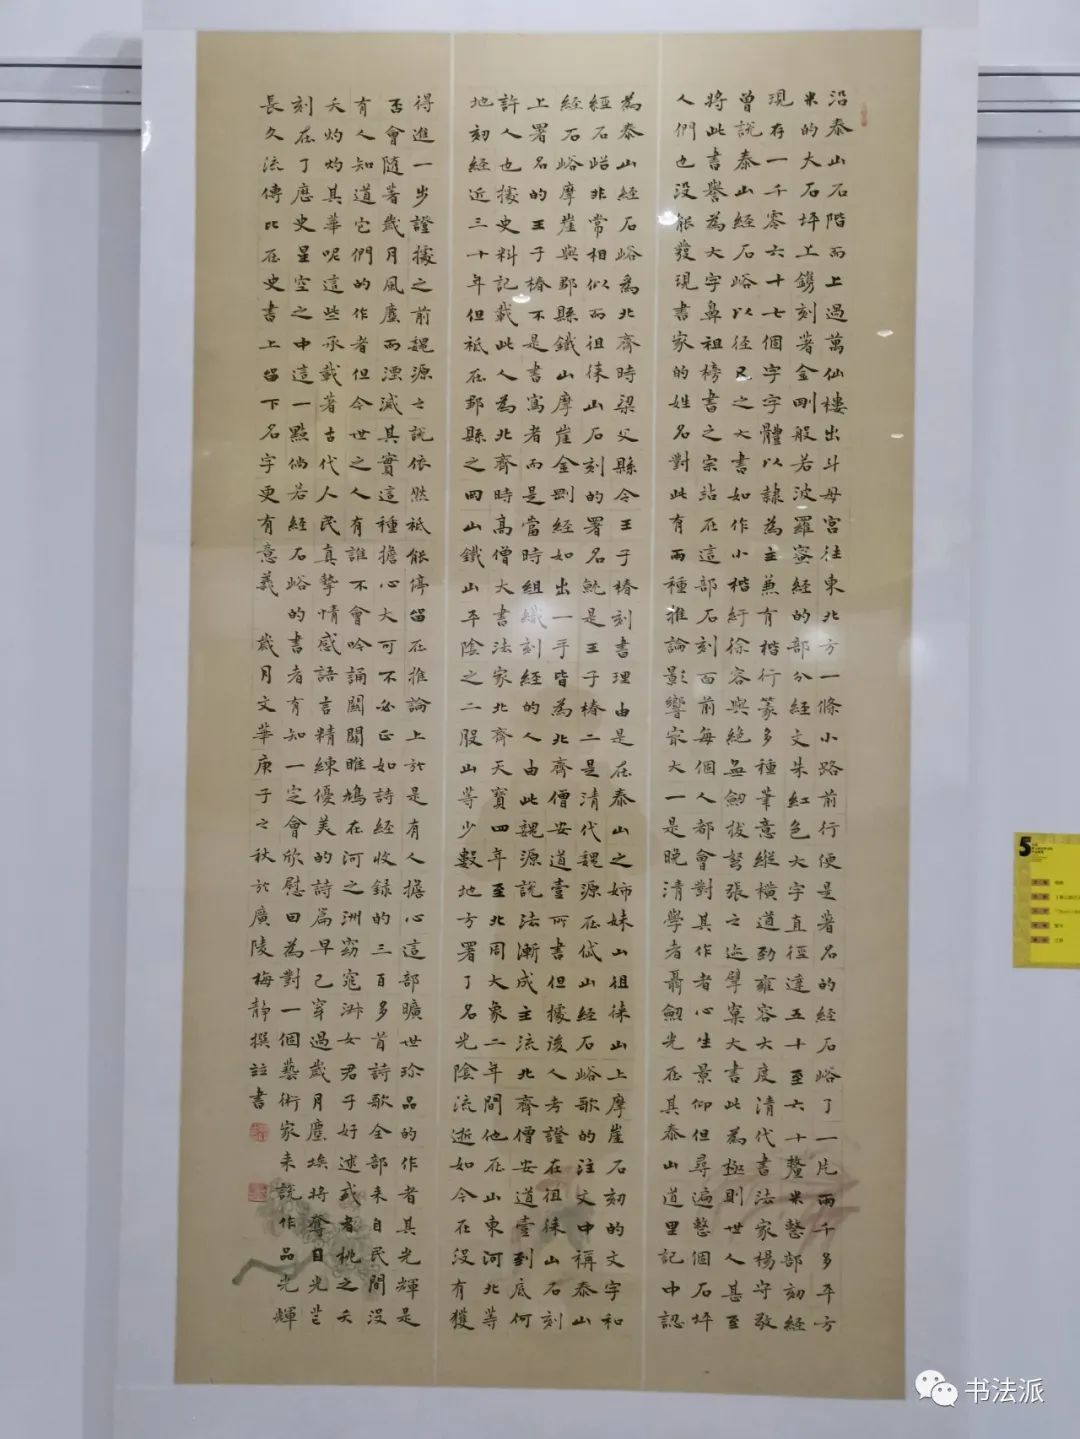 沿泰山石階而上過萬仙樓出斗母宮往東北方一條小路前行便是著名的經石峪了一片兩千多平方
米的大石坪上鐫刻著金剛般若波羅蜜經的部分經文朱紅色大字直徑達五十至六十釐米整部刻經
現存一千零六十七個字字體以隸為主兼有楷行篆多種筆意縱橫道勁雍容大度清代書法家楊守敬
曾說泰山經石峪以徑尺之大書如作小楷紆徐容與絕無劍拔弩張之迹擘窠大書此為極則世人甚至
將此書譽為大字鼻祖榜書之宗站在這部石刻面前每個人都會對其作者心生景仰但尋遍整個石坪
人們也沒能發現書家的姓名對此有兩種推論影響最大一是晚清學者聶劍光在其泰山道里記中認
為泰山經石峪為北齊時梁父縣令王子椿刻書理由是在泰山之姊妹山徂徠山上摩崖石刻的文字和
經石峪非常相似而徂徠山石刻的署名就是王子椿二是清代魏源在岱山經石峪歌的注文中稱泰山
經石峪摩崖與鄒縣鐵山摩崖金剛經如出一手皆為北齊僧安道壹所書但據後人考證在徂徠山石刻
上署名的王子椿不是書寫者而是當時組織刻經的人由此魏源說法漸成主流北齊僧安道壹到底何
許人也據史料記載此人為北齊時高僧大書法家北齊天寶四年至北周大象二年間他在山東河北等
地刻經近三十年但祇在鄒縣之四山鐵山平陰之二股山等少數地方署了名光陰流逝如今在沒有獲
得進一步證據之前魏源之說依然祇能停留在推論上於是有人擔心這部曠世珍品的作者其光輝是
否會隨著歲月風塵而湮滅其實這種擔心大可不必正如詩經收錄的三百多首詩歌全部來自民間沒
有人知道它們的作者但今世之人有誰不會吟誦關關雎鳩在河之洲窈窕淑女君子好逑或者桃之夭
夭灼灼其華呢這些承載著古代人民真摯情感語言精練優美的詩篇早已穿過歲月塵埃將奪目光芒
刻在了歷史星空之中這一點倘若經石峪的書者有知一定會欣慰因為對一個藝術家來說作品光輝
長久流傳比在史書上留下名字更有意義 歲月文華庚子之秋於廣陵梅靜撰並書
5
书法派